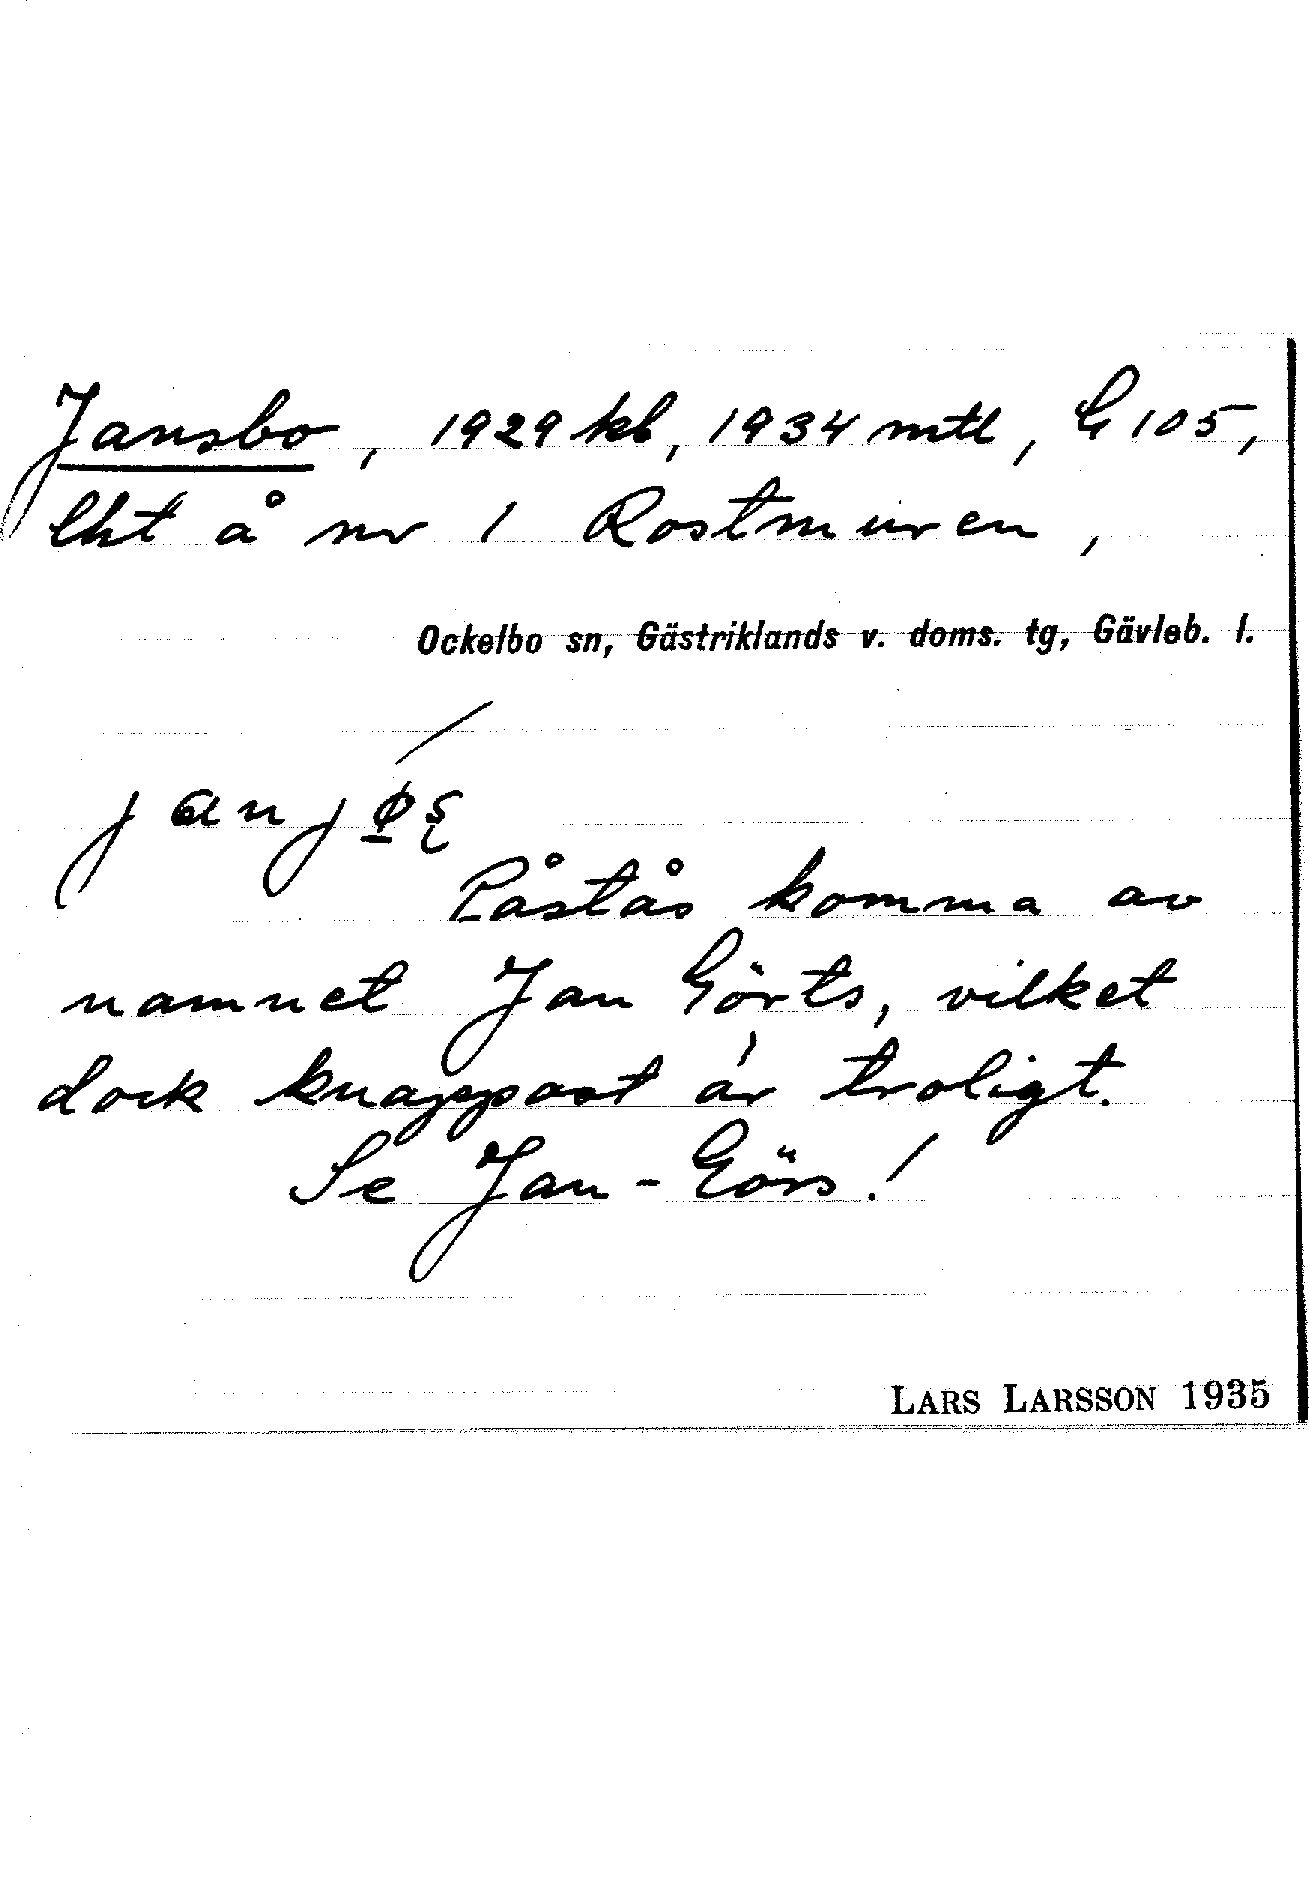 Jansbo, 1929 kb, 1934 mtl, G 105,
lht å nr 1 Rostmuren,
Ockelbo sn, Gästriklands v. doms. tg, Gävleb. l.
Påstås komma av
namnet Jan Görts, vilket
dock knappast är troligt.
Se Jan-Görs!
LARS LARSSON 1935